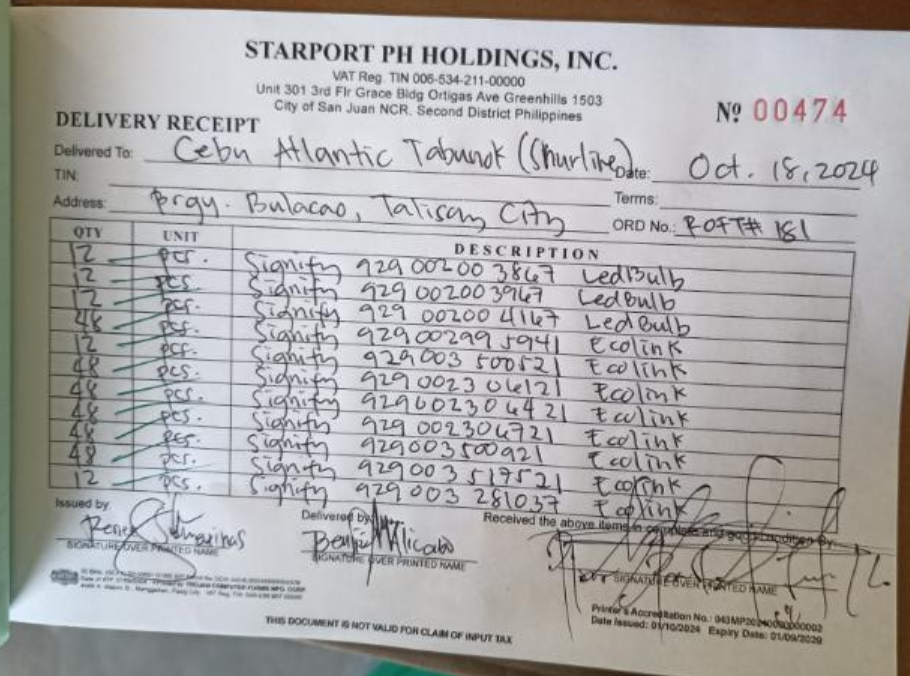 STARPORT PH HOLDINGS, INC.
VAT Reg. TIN 006-534-211-00000
Unit 301 3rd Flr Grace Bldg Ortigas Ave Greenhills 1503
City of San Juan NCR. Second District Philippines
Nº 00474
DELIVERY RECEIPT
Delivered To: Cebu Atlantic Tabunok (Shurline) Date: Oct. 18, 2024
TIN: Terms:
Address: Brgy. Bulacao, Talisay City ORD No.: ROFT# 181
QTY UNIT DESCRIPTION
12 pcs. Signify 929 00200 3867 LedBulb
12 pcs. Signify 929 00200 3967 LedBulb
12 pcs. Signify 929 00200 4167 LedBulb
48 pcs. Signify 929 00299 5941 Ecolink
12 pcs. Signify 929 003 500521 Ecolink
48 pcs. Signify 929 0023 06121 Ecolink
48 pcs. Signify 929002306421 Ecolink
48 pcs. Signify 929 002306721 Ecolink
48 pcs. Signify 929003500921 Ecolink
48 pcs. Signify 929 003 517521 Ecolink
12 pcs. Signify 929 003 281037 Ecolink
Issued by Delivered by Received the above items in complete and good condition By:
SIGNATURE OVER PRINTED NAME SIGNATURE OVER PRINTED NAME SIGNATURE OVER PRINTED NAME
THIS DOCUMENT IS NOT VALID FOR CLAIM OF INPUT TAX
Printer's Accreditation No.:
Date Issued: 01/10/2024 Expiry Date: 01/09/2029